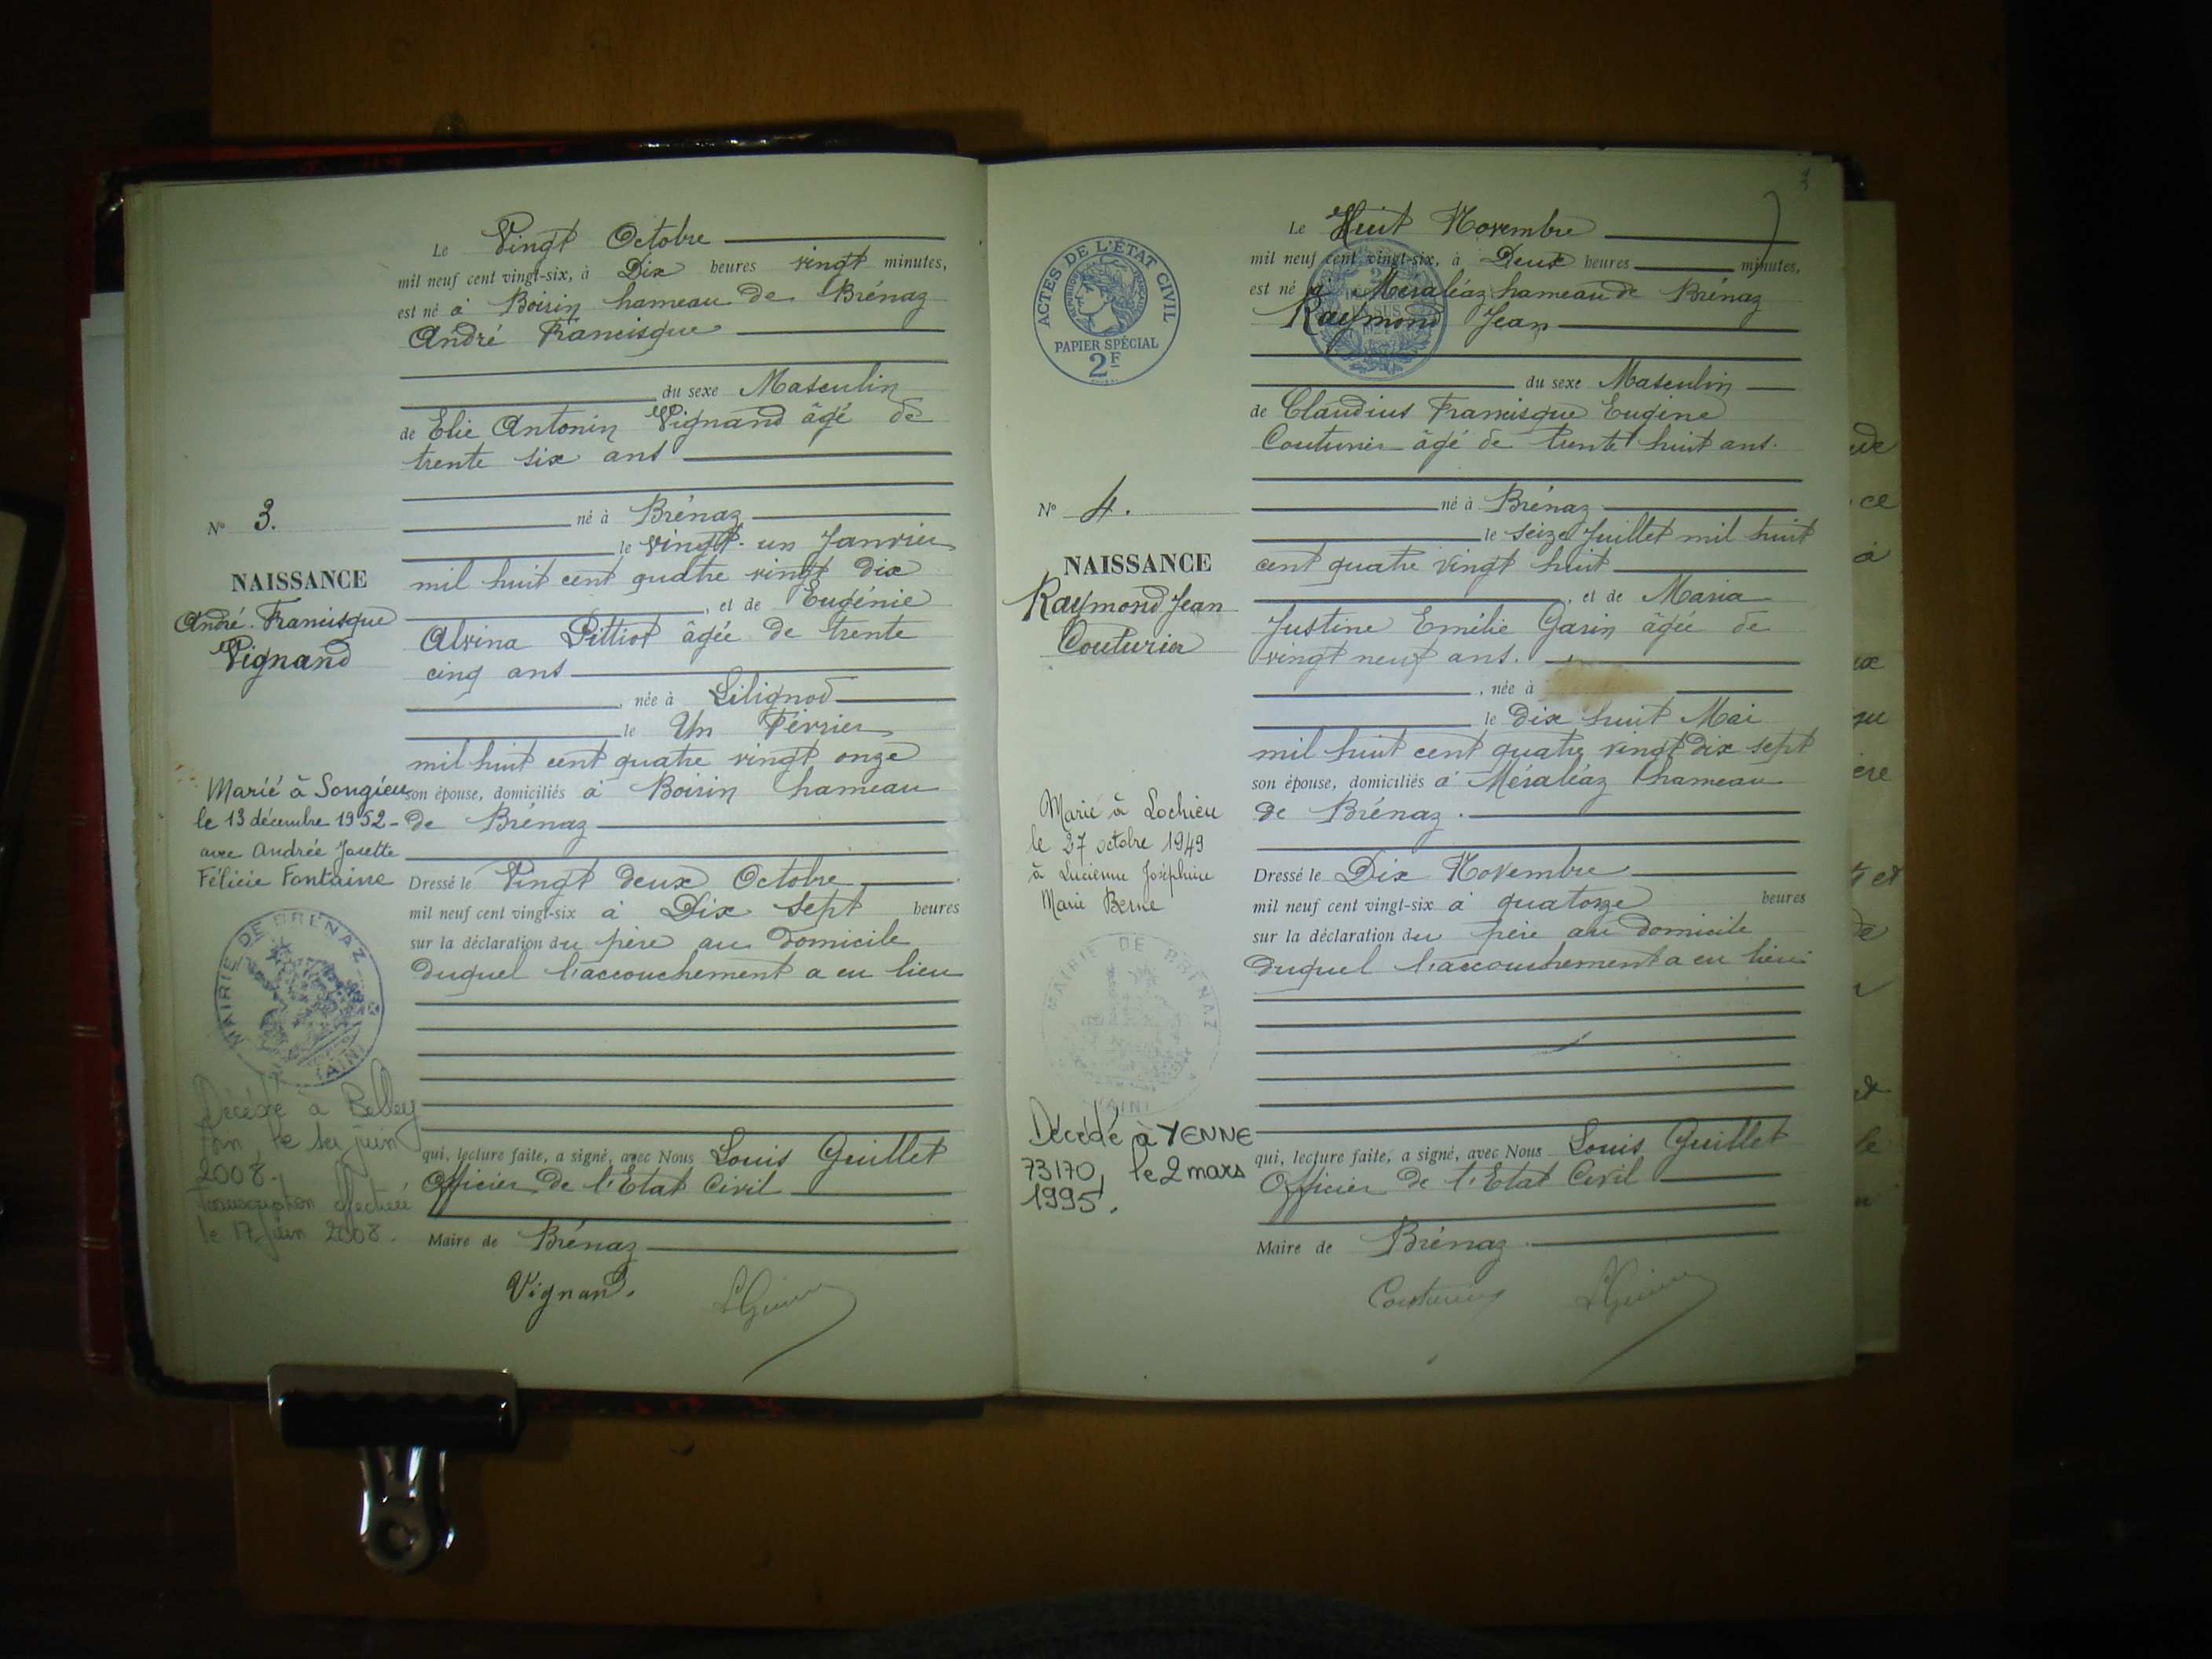 Le Vingt Octobre
mil neuf cent vingt-six, à Dix heures vingt minutes,
est né à Boirin hameau de Brénaz
André Francisque
du sexe Masculin
de Elie Antonin Vignand âgé de
trente six ans
né à Brénaz
le vingt-un Janvier
mil huit cent quatre vingt dix
, et de Eugénie
Alvina Pittiot âgée de trente
cinq ans
, née à Lilignod
le Un Février
mil huit cent quatre vingt onze
son épouse, domiciliés à Boirin hameau
de Brénaz
Dressé le Vingt deux Octobre
mil neuf cent vingt-six à Dix sept heures
sur la déclaration du père au domicile
duquel l'accouchement a eu lieu
qui, lecture faite, a signé, avec Nous Louis Guillet
Officier de l'Etat Civil
Maire de Brénaz
Vignand.
N° 3.
NAISSANCE
André Francisque
Vignand
Marié à Songieu
le 13 décembre 1952
avec Andrée Josette
Félicie Fontaine
MAIRIE DE BRENAZ
(AIN)
Décédé à Belley
Ain, le 1er juin
2008.
Transcription effectuée
le 17 juin 2008.
3
Le Huit Novembre
mil neuf cent vingt-six, à Deux heures minutes,
est né à Méraléaz hameau de Brénaz
Raymond Jean
du sexe Masculin
de Claudius Francisque Eugène
Couturier âgé de trente huit ans.
né à Brénaz
le seize Juillet mil huit
cent quatre vingt huit
, et de Maria
Justine Emélie Garin âgée de
vingt neuf ans.
, née à
le dix huit Mai
mil huit cent quatre vingt dix sept
son épouse, domiciliés à Méraléaz hameau
de Brénaz.
Dressé le Dix Novembre
mil neuf cent vingt-six à quatorze heures
sur la déclaration du père au domicile
duquel l'accouchement a eu lieu
qui, lecture faite, a signé, avec Nous Louis Guillet
Officier de l'Etat Civil
Maire de Brénaz.
Couturier
ACTES DE L'ÉTAT CIVIL
PAPIER SPÉCIAL
2F
N° 4.
NAISSANCE
Raymond Jean
Couturier
Marié à Lochieu
le 27 octobre 1949
à Lucienne Joséphine
Marie Berne
MAIRIE DE BRENAZ
(AIN)
Décédé à YENNE
73170, le 2 mars
1995.